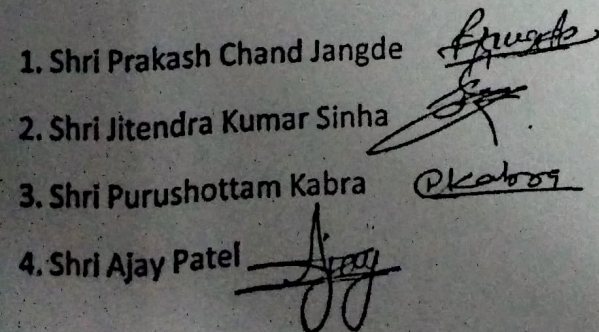 1. Shri Prakash Chand Jangde
2. Shri Jitendra Kumar Sinha
3. Shri Purushottam Kabra Pkabra
4. Shri Ajay Patel Ajay